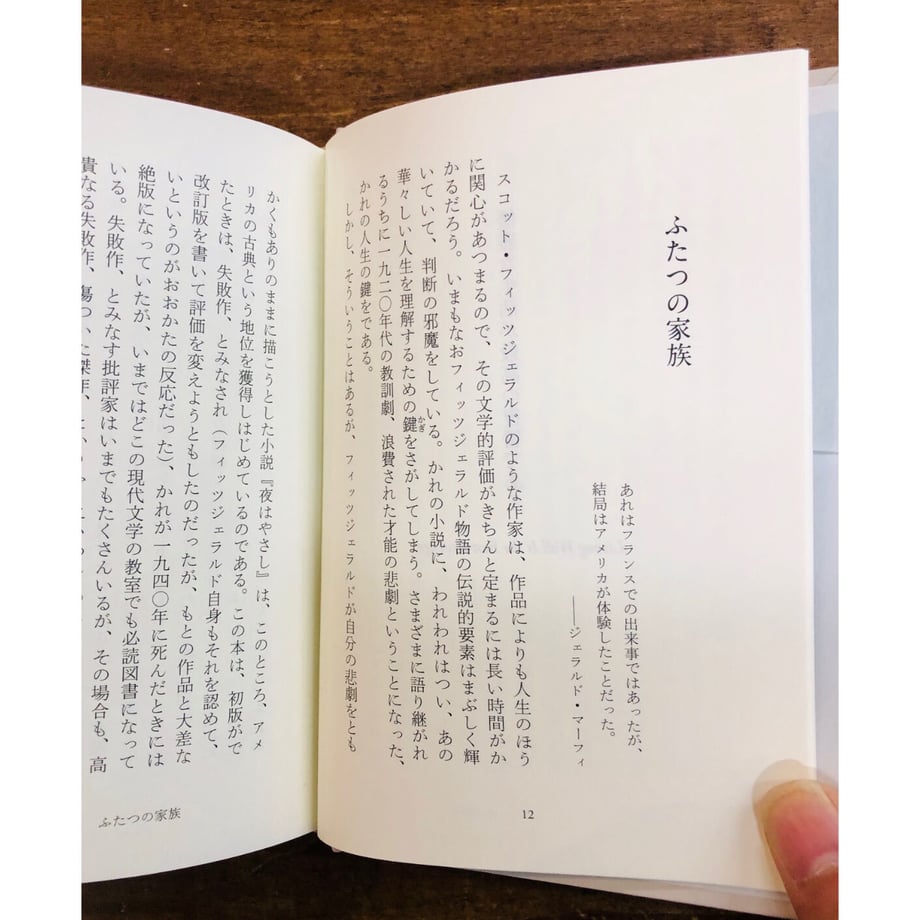 ふたつの家族
あれはフランスでの出来事ではあったが、
結局はアメリカが体験したことだった。
――ジェラルド・マーフィ
スコット・フィッツジェラルドのような作家は、作品によりも人生のほう
に関心があつまるので、その文学的評価がきちんと定まるには長い時間がか
かるだろう。いまもなおフィッツジェラルド物語の伝説的要素はまぶしく輝
いていて、判断の邪魔をしている。かれの小説に、われわれはつい、あの
華々しい人生を理解するための鍵をさがしてしまう。さまざまに語り継がれ
かぎ
るうちに一九二〇年代の教訓劇、浪費された才能の悲劇ということになった、
かれの人生の鍵をである。
しかし、そういうことはあるが、フィッツジェラルドが自分の悲劇をとも
12
かくもありのままに描こうとした小説『夜はやさし』は、このところ、アメ
リカの古典という地位を獲得しはじめているのである。この本は、初版がで
たときは、失敗作、とみなされ（フィッツジェラルド自身もそれを認めて、
改訂版を書いて評価を変えようともしたのだったが、もとの作品と大差な
いというのがおおかたの反応だった）、かれが一九四〇年に死んだときには
絶版になっていたが、いまではどこの現代文学の教室でも必読図書になって
いる。失敗作、とみなす批評家はいまでもたくさんいるが、その場合も、高
貴なる失敗作、傷ついた傑作、と
ふたつの家族